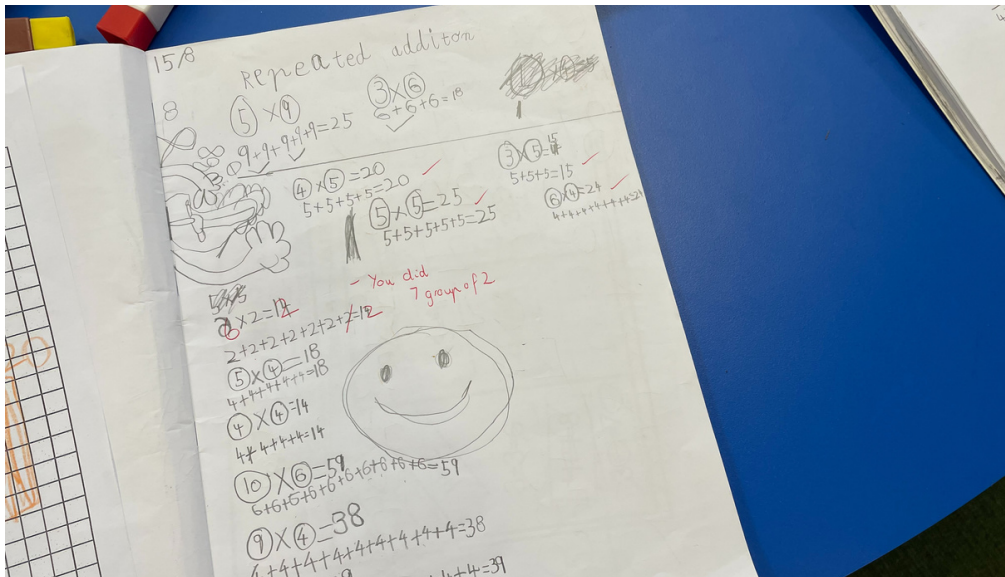 15/8
Repeated additon
8
5 × 9
9+9+9+9+9=25
3 × 6
6+6+6=18
4 × 5 =20
5+5+5+5=20
5 × 5 =25
5+5+5+5+5=25
3 × 5 = 15
5+5+5=15
6 × 4 =24
4+4+4+4+4+4=24
- You did
7 group of 2
× 2 =
2+2+2+2+2+2+2
5 × 4 =18
4+4+4+4+4=18
4 × 4 =14
4+4+4+4=14
10 × 6 =59
6+6+6+6+6+6+6+6+6+6=59
9 × 4 =38
4+4+4+4+4+4+4+4+4=38
4+4=39